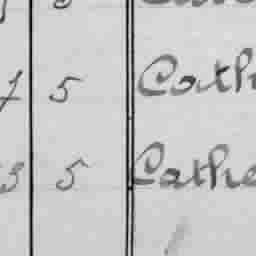 7 5 Cath
3 5 Cathe